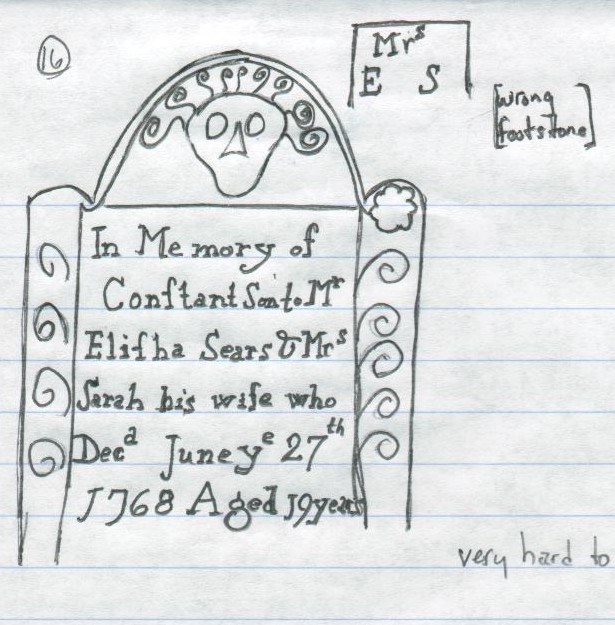 16
Mrˢ
E S
[wrong
footstone]
In Memory of
Conſtant Son to Mʳ
Eliſha Sears & Mrˢ
Sarah his wife who
Decᵈ June yᵉ 27ᵗʰ
1768 Aged 19 years
very hard to